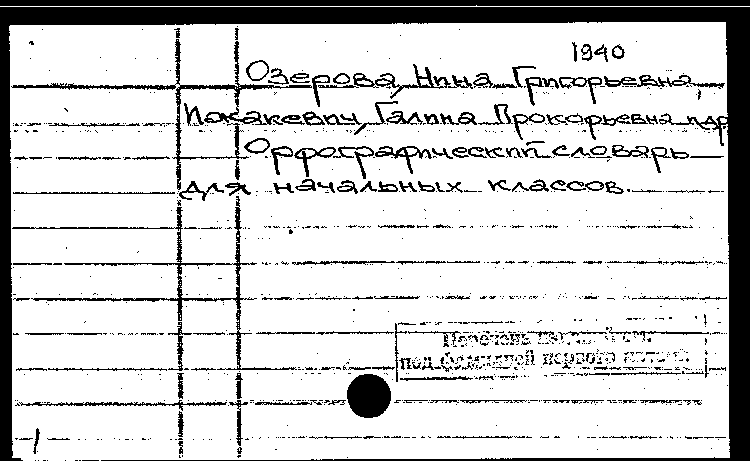 1940
Озерова, Нина Григорьевна,
Галина Прокорьевна и др
Орфографический словарь
для начальных классов.
Перечень см.
под фамилией первого